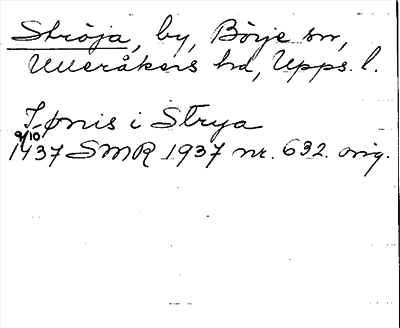 Ströja, by, Börje sn,
Ulleråkers hd, Upps. l.
Jønis i Strya
9/10
1437 SMR 1937 nr. 632. orig.